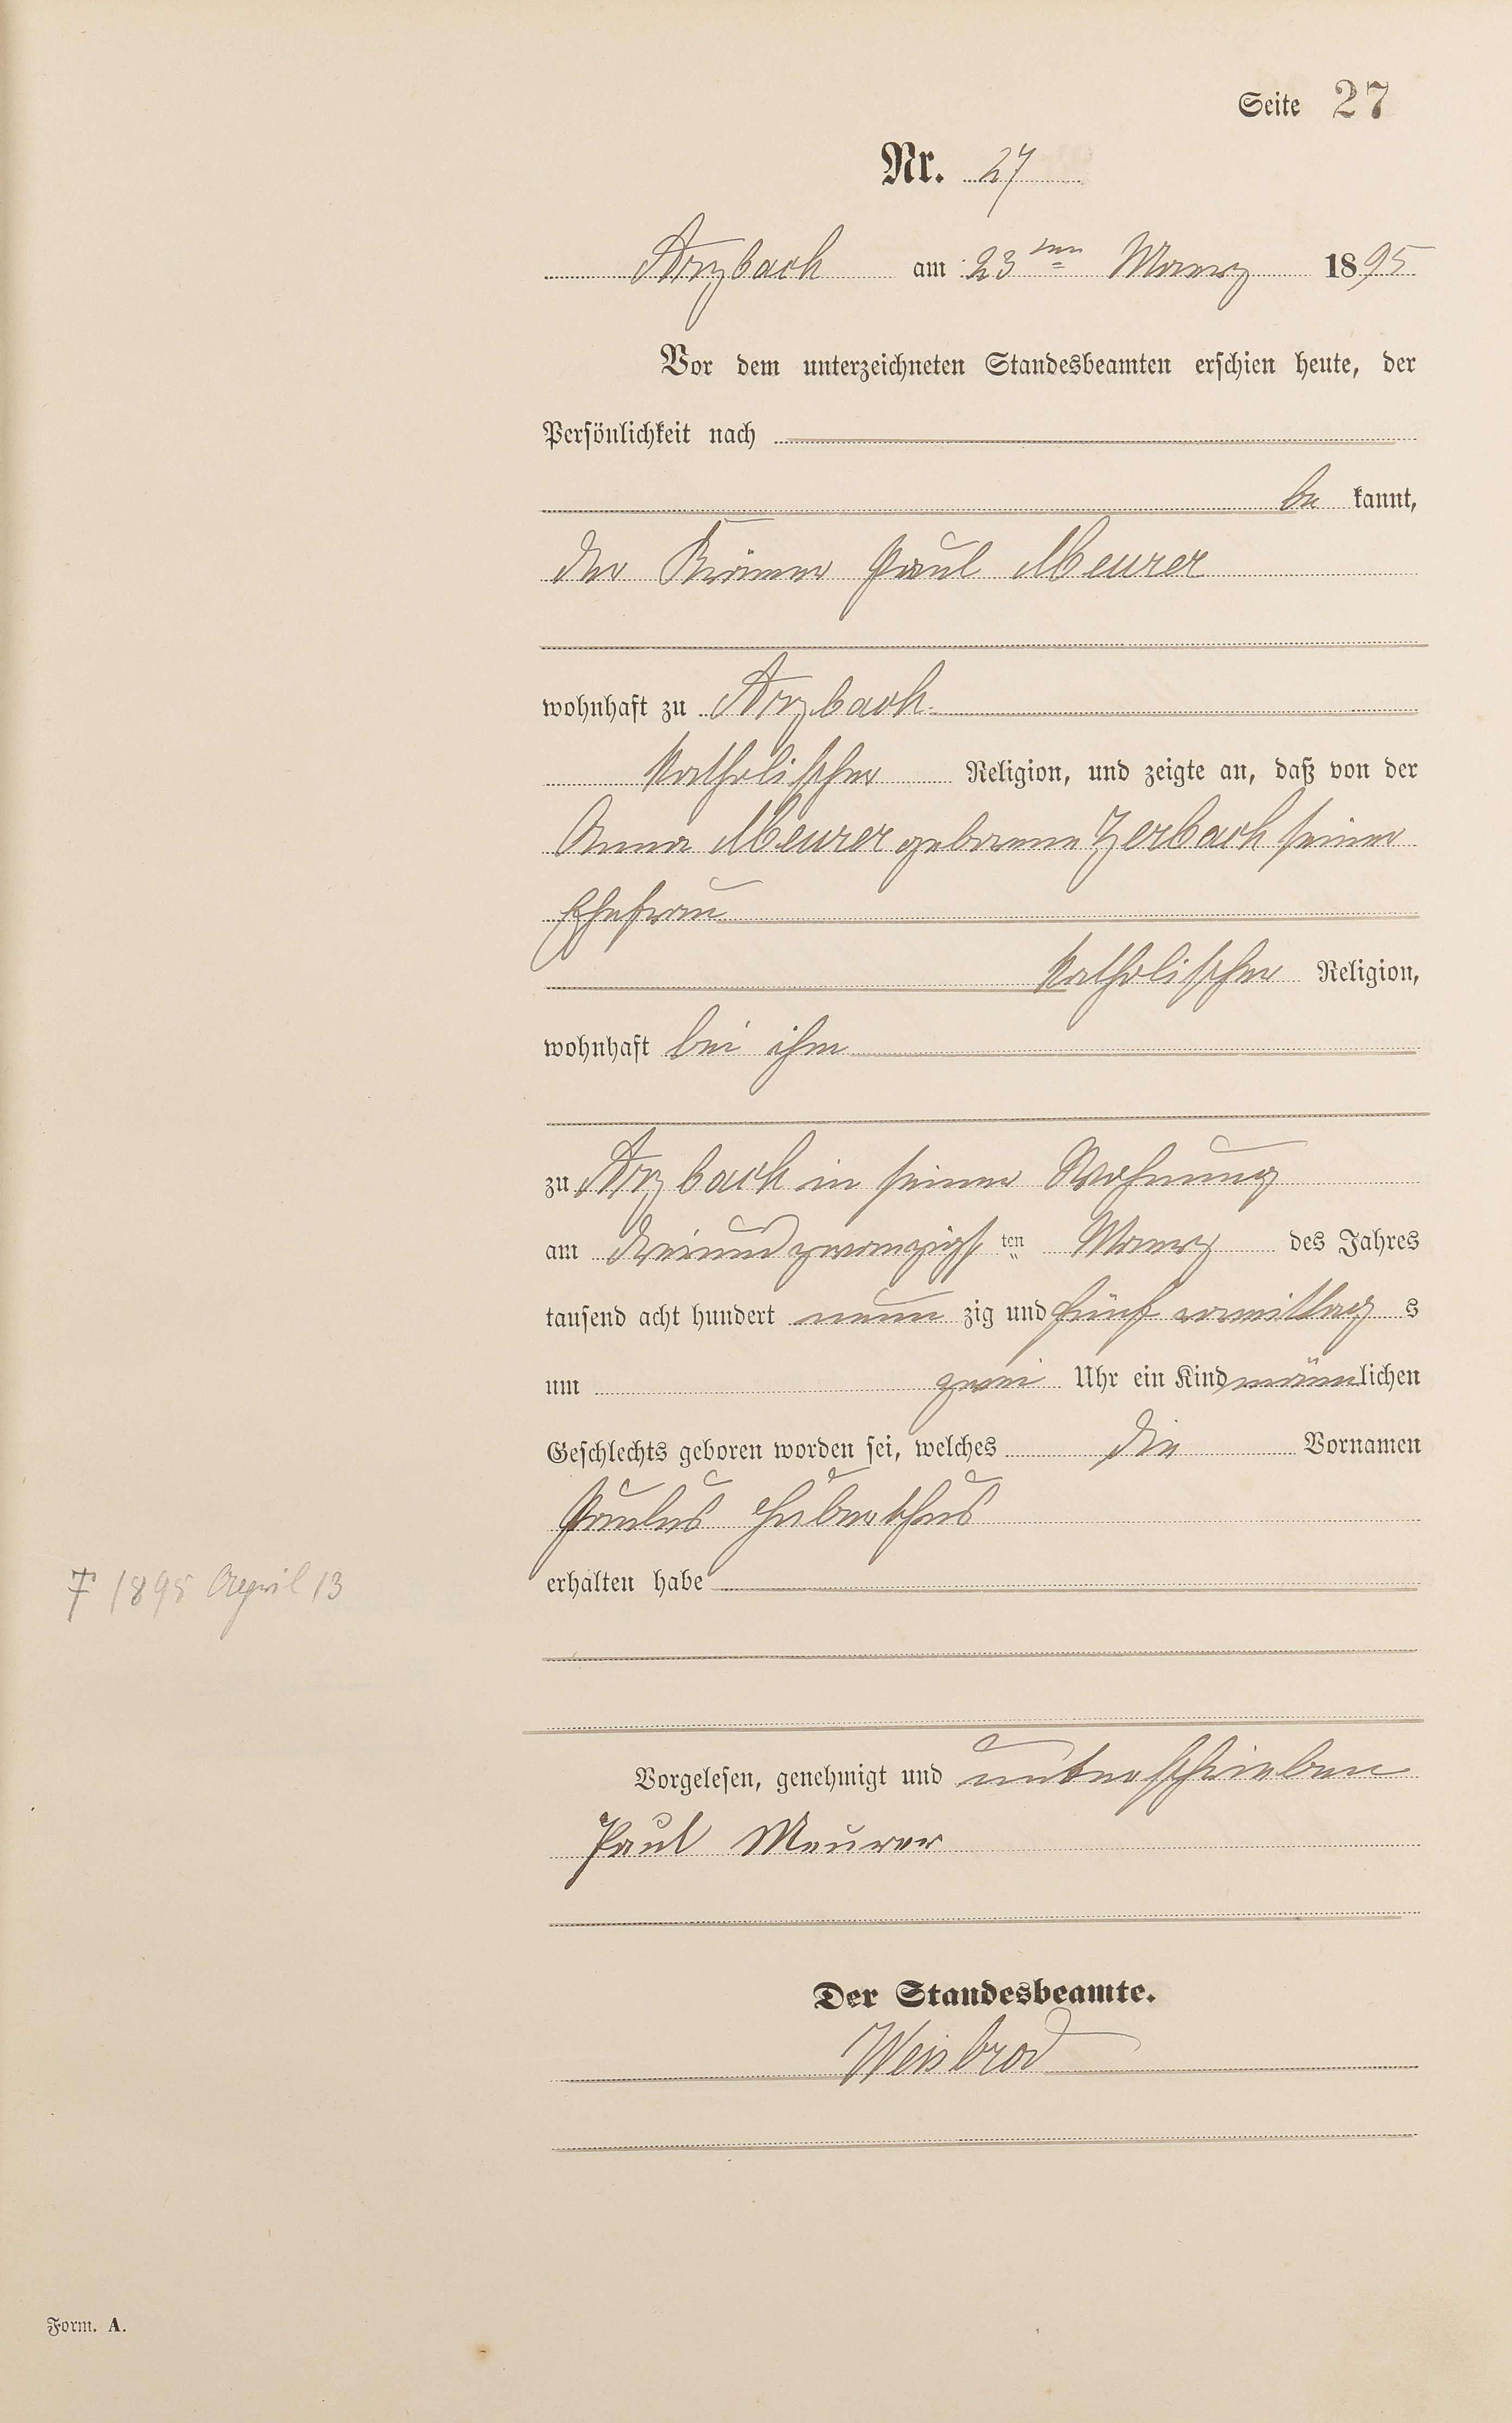 Seite 27
Nr. 27
Arzbach am 23ten Maerz 1895
Vor dem unterzeichneten Standesbeamten erschien heute, der
Persönlichkeit nach
be kannt,
der Krämer Paul Meurer
wohnhaft zu Arzbach
katholischer Religion, und zeigte an, daß von der
Anna Meurer geborene Zerbach seiner
Ehefrau
katholischer Religion,
wohnhaft bei ihm
zu Arzbach in seiner Wohnung
am dreiundzwanzigsten Maerz des Jahres
tausend acht hundert neun zig und fünf vormittag s
um zwei Uhr ein Kind männlichen
Geschlechts geboren worden sei, welches die Vornamen
Paulus Huberthus
erhalten habe
† 1895 April 13
Vorgelesen, genehmigt und unterschrieben
Paul Meurer
Der Standesbeamte.
Weisbrod
Form. A.